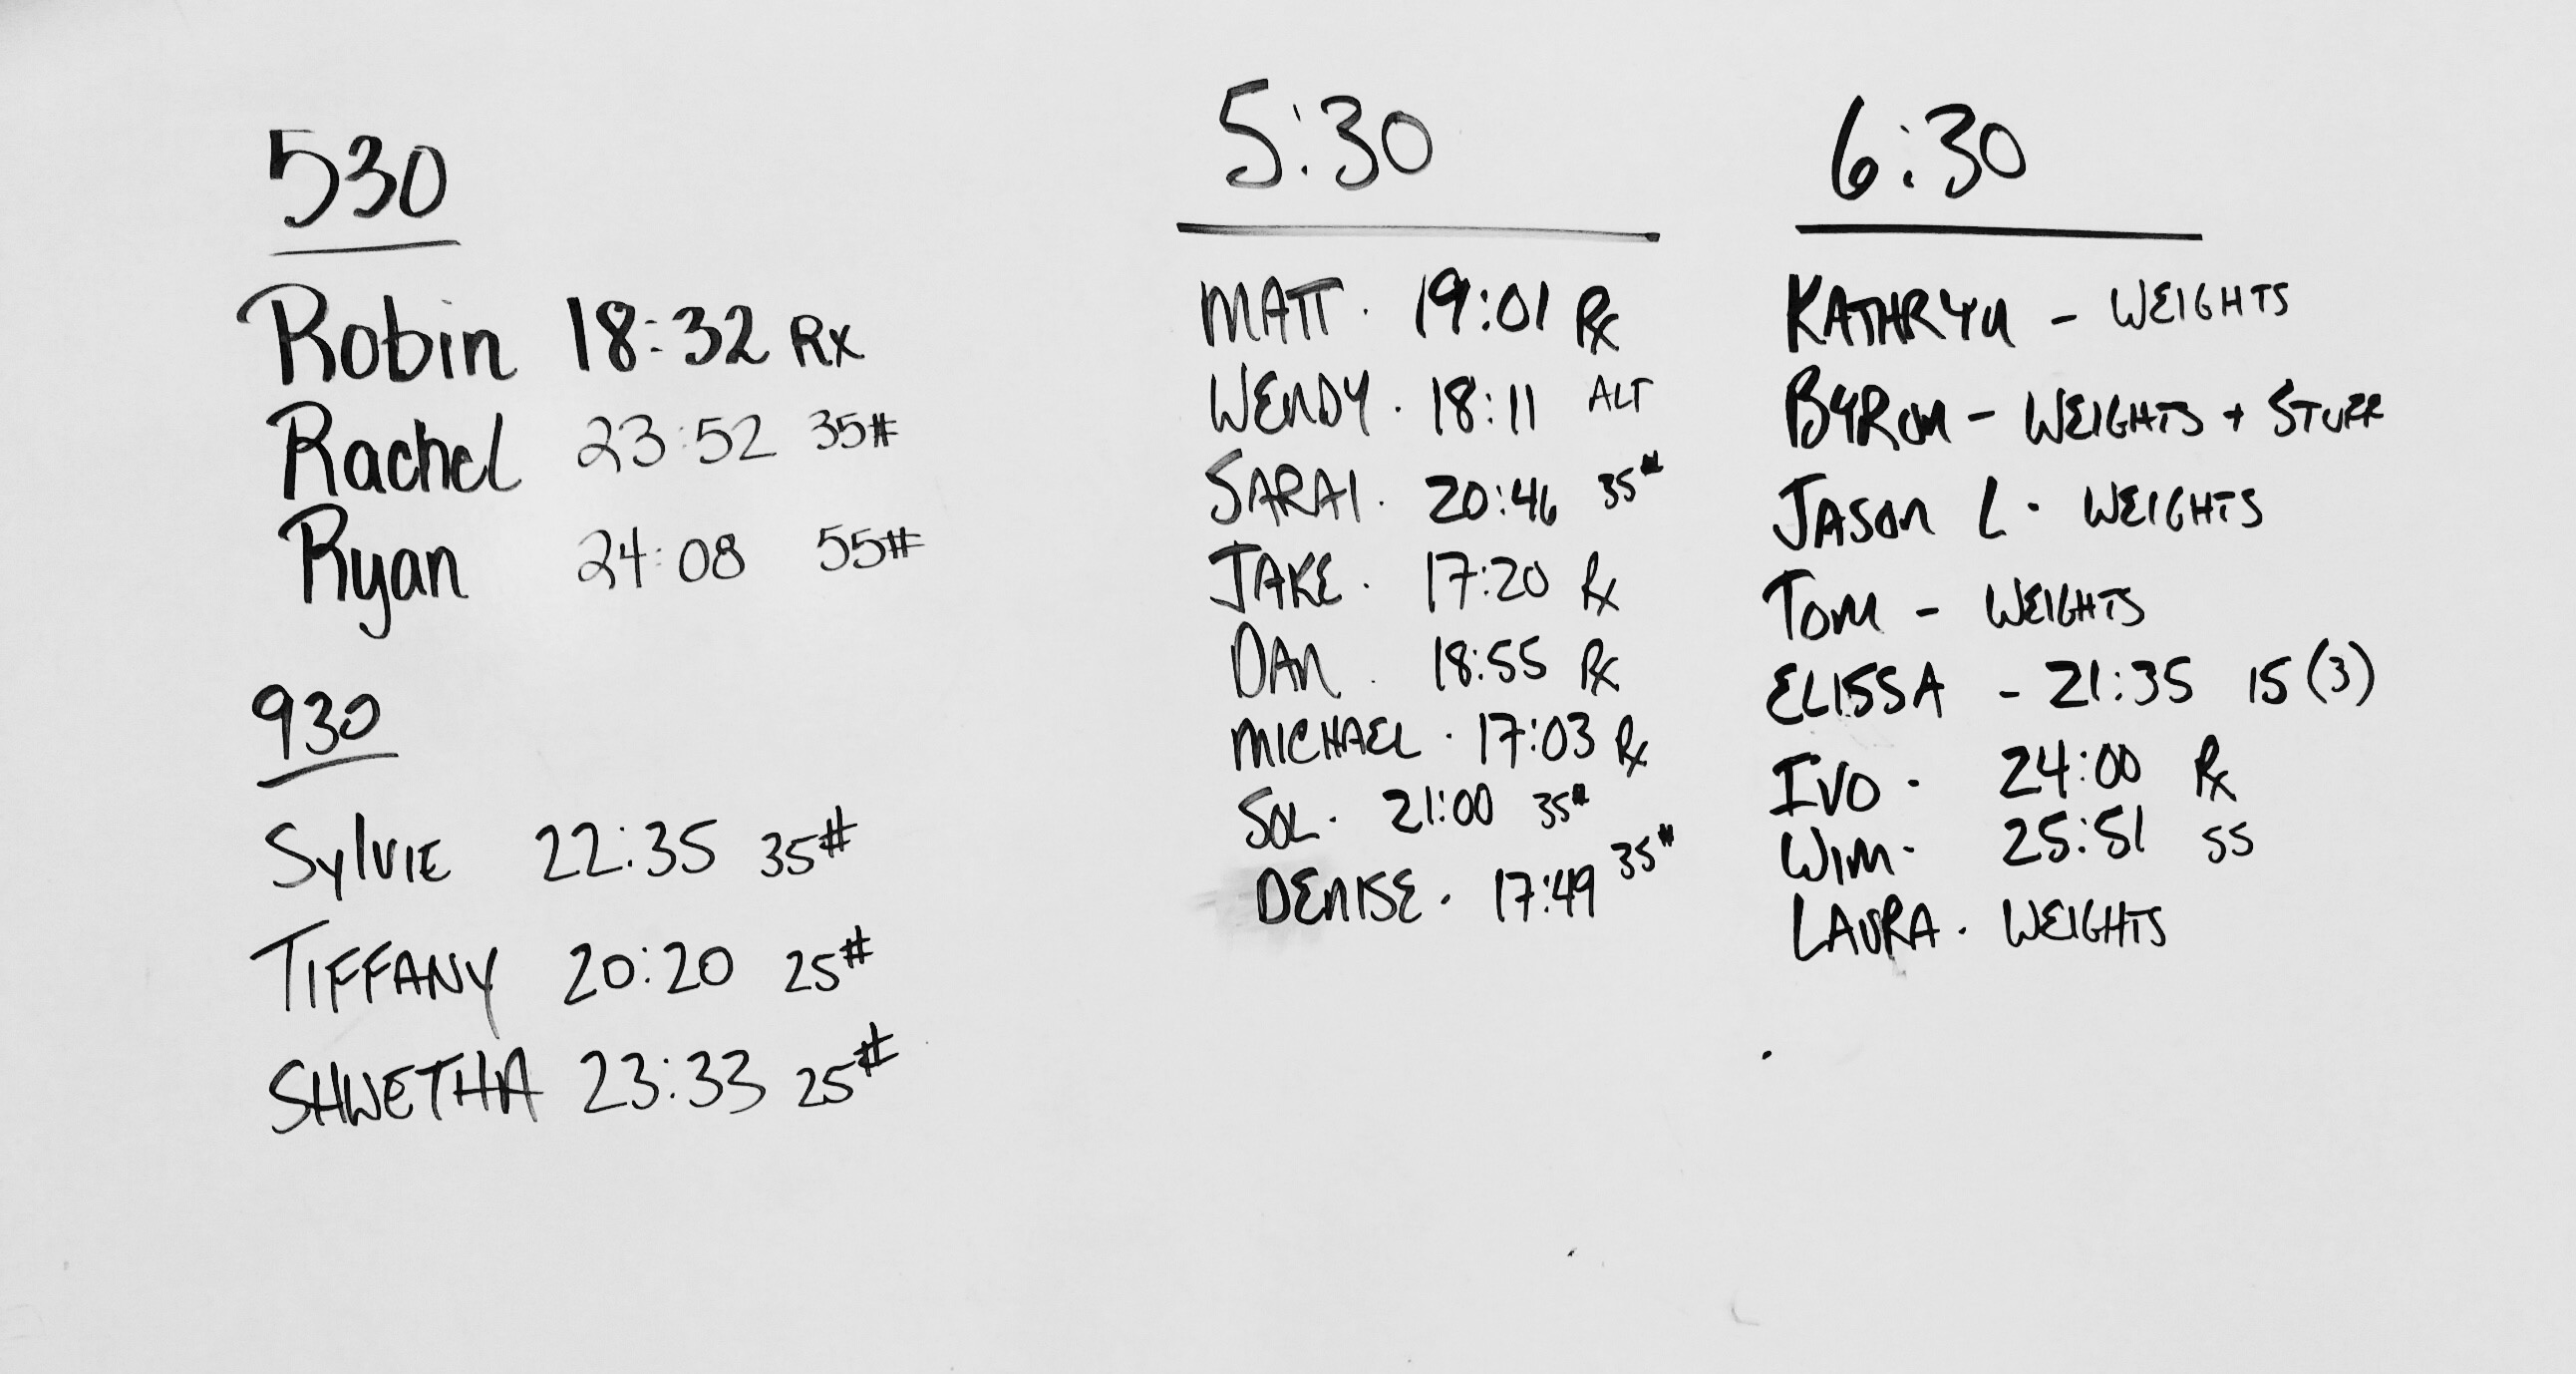 530
Robin 18:32 Rx
Rachel 23:52 35#
Ryan 24:08 55#
930
Sylvie 22:35 35#
TIFFANY 20:20 25#
SHWETHA 23:33 25#
5:30
MATT. 19:01 Rx
WENDY. 18:11 ALT
SARAI. 20:46 35#
JAKE. 17:20 Rx
DAN. 18:55 Rx
MICHAEL. 17:03 Rx
SOL. 21:00 35#
DENISE. 17:49 35#
6:30
KATHRYN - WEIGHTS
BYRON - WEIGHTS + STUFF
JASON L. WEIGHTS
TOM - WEIGHTS
ELISSA - 21:35 15 (3)
IVO. 24:00 Rx
WIM. 25:51 55
LAURA. WEIGHTS